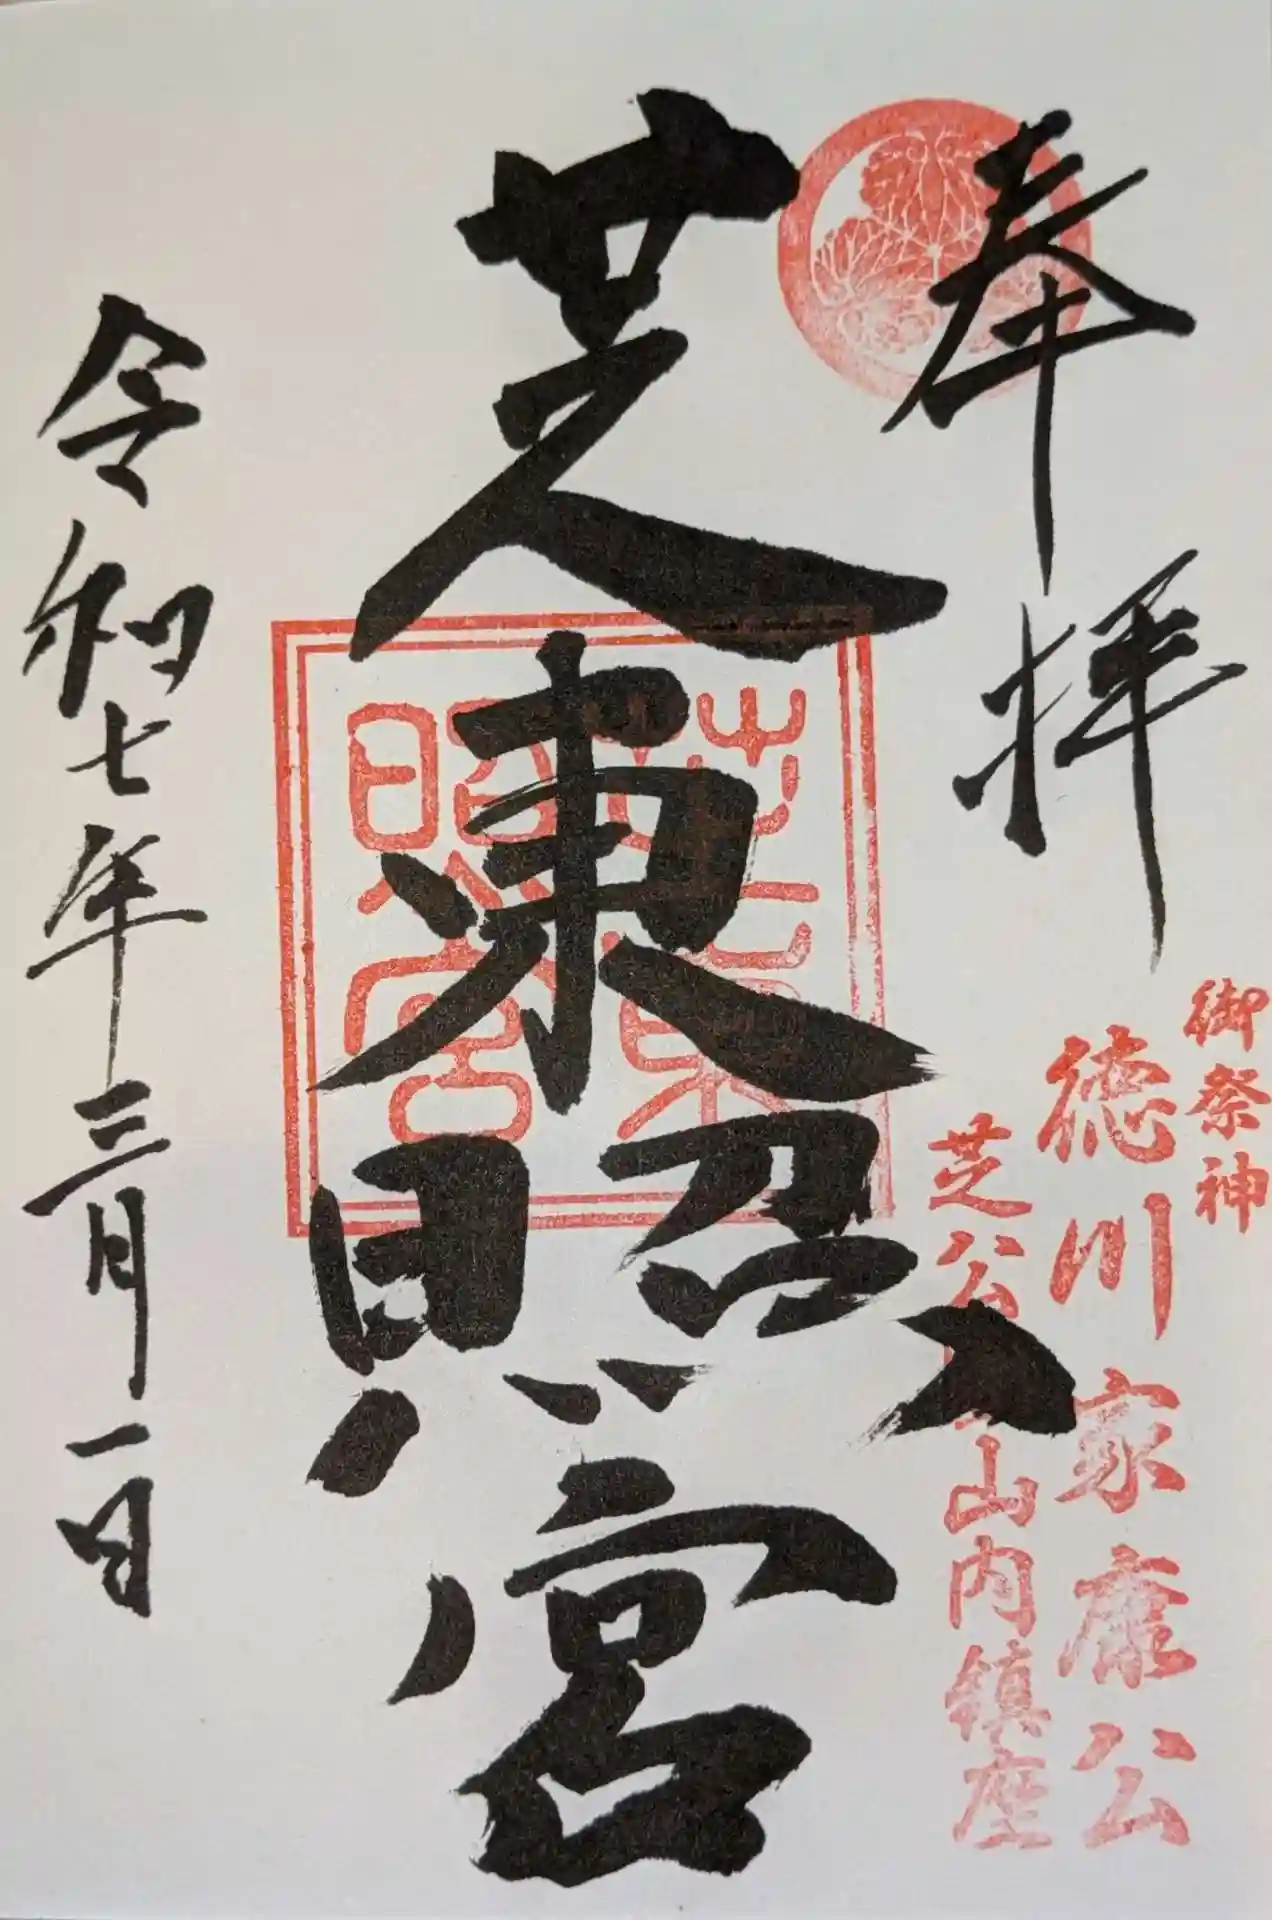 奉拝
御祭神
徳川家康公
芝公円山内鎮座
芝東照宮
芝東照宮
令和七年三月一日